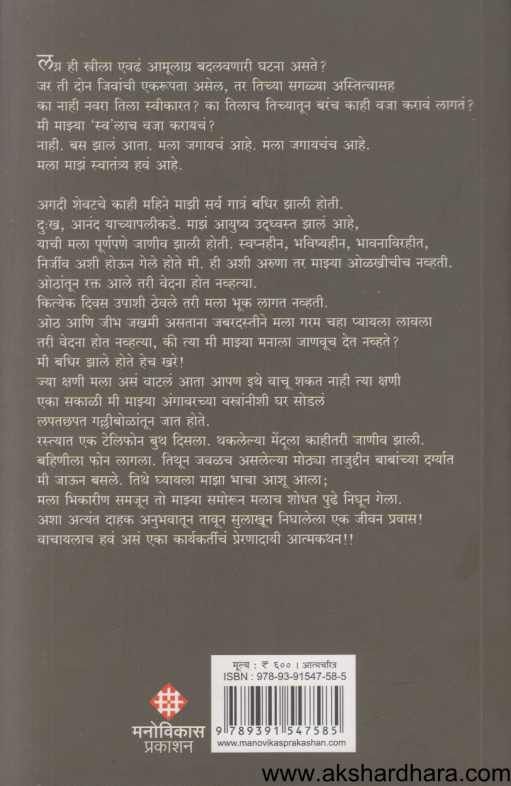 लग्न ही स्त्रीला एवढं आमूलाग्र बदलवणारी घटना असते?
जर ती दोन जिवांची एकरूपता असेल, तर तिच्या सगळ्या अस्तित्वासह
का नाही नवरा तिला स्वीकारत? का तिलाच तिच्यातून बरंच काही वजा करावं लागतं?
मी माझ्या 'स्व'लाच वजा करायचं?
नाही. बस झालं आता. मला जगायचं आहे. मला जगायचंच आहे.
मला माझं स्वातंत्र्य हवं आहे.
अगदी शेवटचे काही महिने माझी सर्व गात्रं बधिर झाली होती.
दुःख, आनंद याच्यापलीकडे. माझं आयुष्य उद्ध्वस्त झालं आहे,
याची मला पूर्णपणे जाणीव झाली होती. स्वप्नहीन, भविष्यहीन, भावनाविरहीत,
निर्जीव अशी होऊन गेले होते मी. ही अशी अरुणा तर माझ्या ओळखीचीच नव्हती.
ओठांतून रक्त आले तरी वेदना होत नव्हत्या.
कित्येक दिवस उपाशी ठेवले तरी मला भूक लागत नव्हती.
ओठ आणि जीभ जखमी असताना जबरदस्तीने मला गरम चहा प्यायला लावला
तरी वेदना होत नव्हत्या, की त्या मी माझ्या मनाला जाणवूच देत नव्हते?
मी बधिर झाले होते हेच खरे!
ज्या क्षणी मला असं वाटलं आता आपण इथे वाचू शकत नाही त्या क्षणी
एका सकाळी मी माझ्या अंगावरच्या वस्त्रांनीशी घर सोडलं
लपतछपत गल्लीबोळांतून जात होते.
रस्त्यात एक टेलिफोन बुथ दिसला. थकलेल्या मेंदूला काहीतरी जाणीव झाली.
बहिणीला फोन लागला. तिथून जवळच असलेल्या मोठ्या ताजुद्दीन बाबांच्या दर्ग्यात
मी जाऊन बसले. तिथे घ्यायला माझा भाचा आशू आला;
मला भिकारीण समजून तो माझ्या समोरून मलाच शोधत पुढे निघून गेला.
अशा अत्यंत दाहक अनुभवातून तावून सुलाखून निघालेला एक जीवन प्रवास!
वाचायलाच हवं असं एका कार्यकर्तीचं प्रेरणादायी आत्मकथन!!
मूल्य : ₹ ६०० । आत्मचरित्र
ISBN : 978-93-91547-58-5
9 789391 547585
www.manovikasprakashan.com
मनोविकास
प्रकाशन
www.akshardhara.com